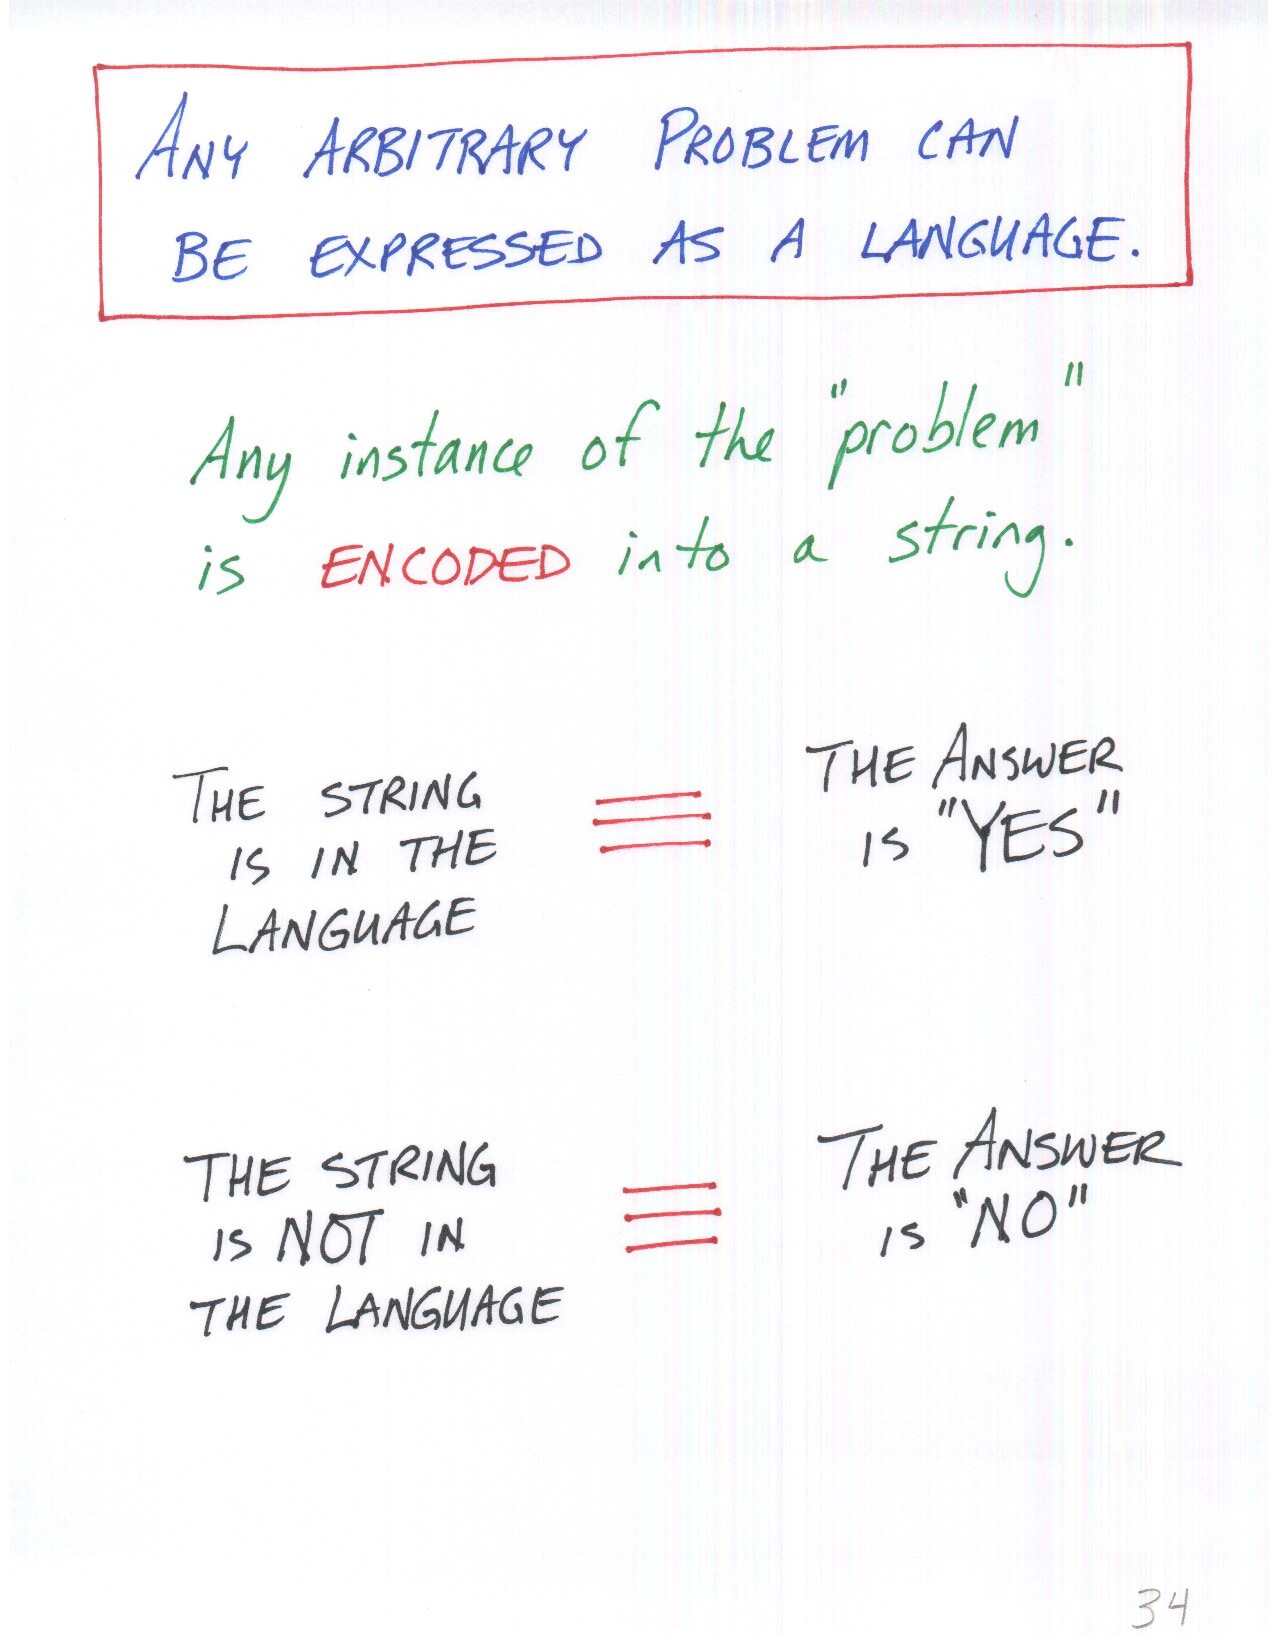 ANY ARBITRARY PROBLEM CAN
BE EXPRESSED AS A LANGUAGE.
Any instance of the "problem"
is ENCODED into a string.
THE STRING
IS IN THE
LANGUAGE
≡
THE ANSWER
IS "YES"
THE STRING
IS NOT IN
THE LANGUAGE
≡
THE ANSWER
IS "NO"
34